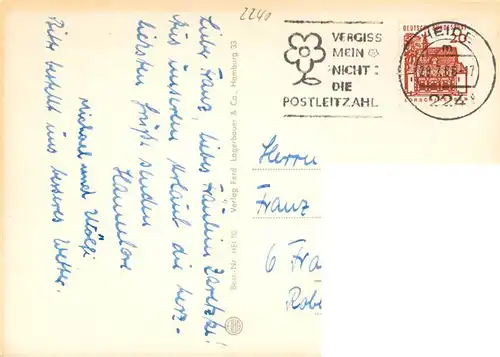 2240
Lieber Franz, liebes Fräulein
Aus unserem Urlaub die herz-
liersten Grüße senden
Hannelore
Michael und Wolfi
Bitte bestellt uns besseres Wetter.
Best.-Nr. HEI 10 Verlag Ferd. Lagerbauer & Co., Hamburg 33
VERGISS
MEIN
NICHT
DIE
POSTLEITZAHL
DEUTSCHE BUNDESPOST
20
HEIDE
224
Herrn
Franz
6 Fra
Robe